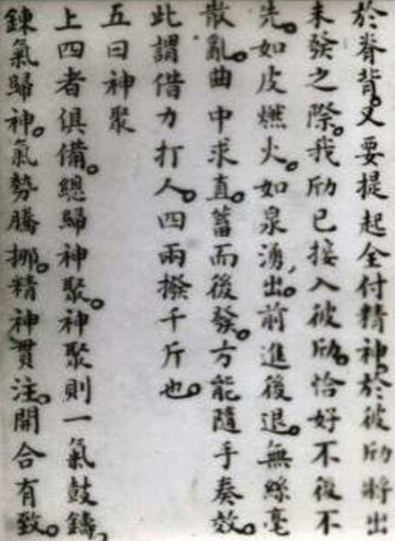 於脊背。又要提起全付精神。於彼劤將出
未發之際。我劤已接入彼劤。恰好不後不
先。如皮燃火。如泉湧出。前進後退。無絲毫
散亂。曲中求直。蓄而後發。方能隨手奏效。
此謂借力打人。四兩撥千斤也。
五曰神聚
上四者俱備。總歸神聚。神聚則一氣鼓鑄。
鍊氣歸神。氣勢騰挪。精神貫注。開合有致。